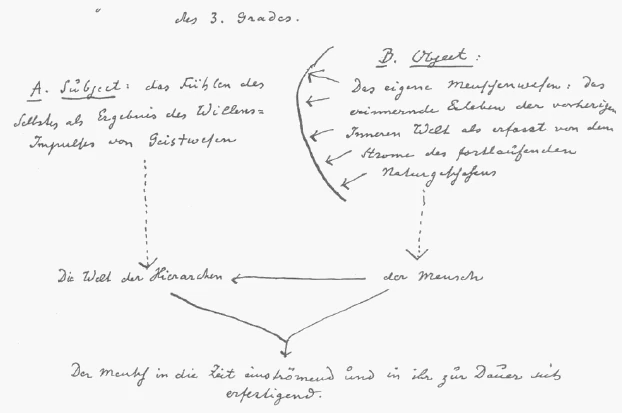 des 3. Grades.
A. Subject: das Fühlen des
Selbstes als Ergebnis des Willens=
Impulses von Geistwesen
B. Object:
Das eigene Menschenwesen: das
erinnernde Erleben der vorherigen
Inneren Welt als erfasst von dem
Strome des fortlaufenden
Naturgeschehens
Die Welt der Hierarchen
der Mensch
Der Mensch in die Zeit einströmend und in ihr zur Dauer sich